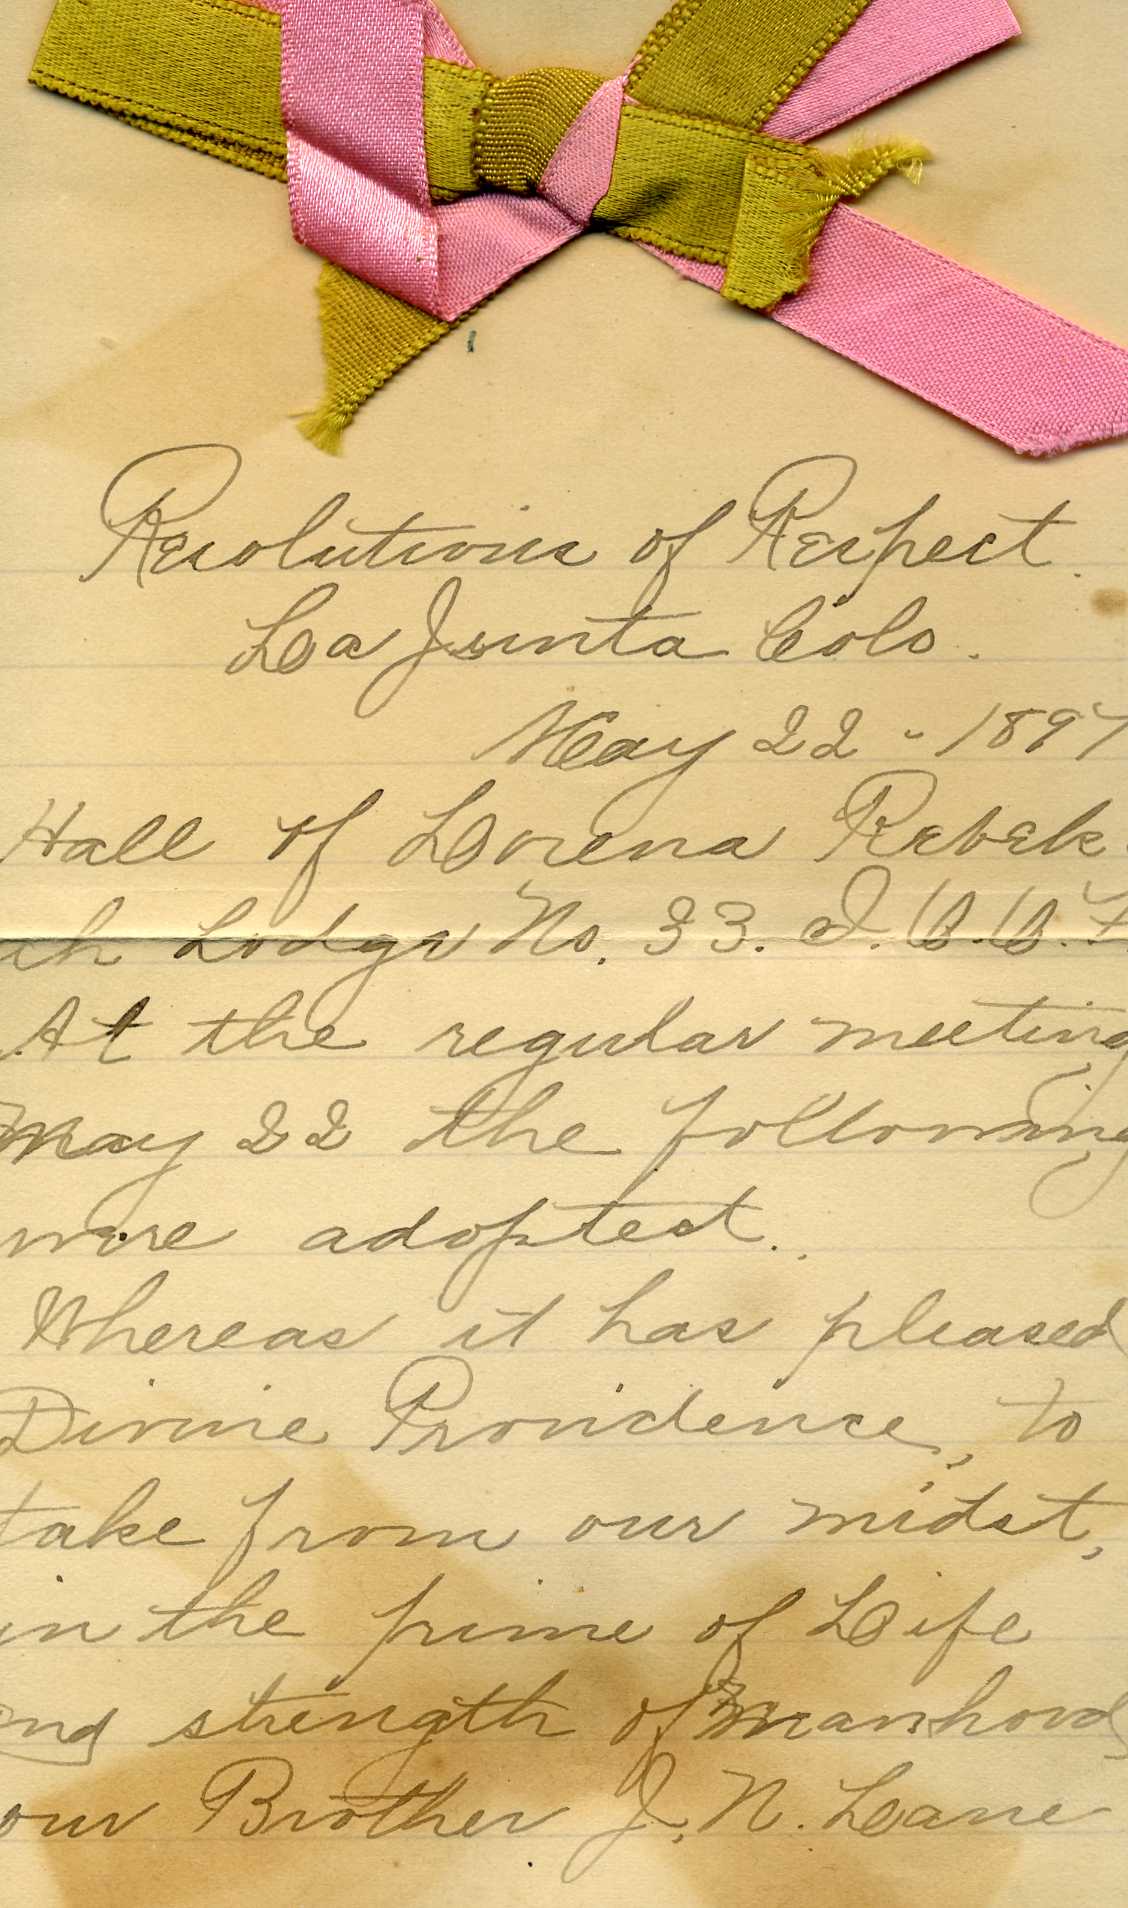 Resolutions of Respect.
La Junta Colo.
May 22 - 1897
Hall of Lorena Rebek
ah Lodge No. 33. I.O.O.F.
At the regular meeting
May 22 the following
were adopted.
Whereas it has pleased
Divine Providence, to
take from our midst,
in the prime of Life
and strength of manhood,
our Brother J. N. Lane